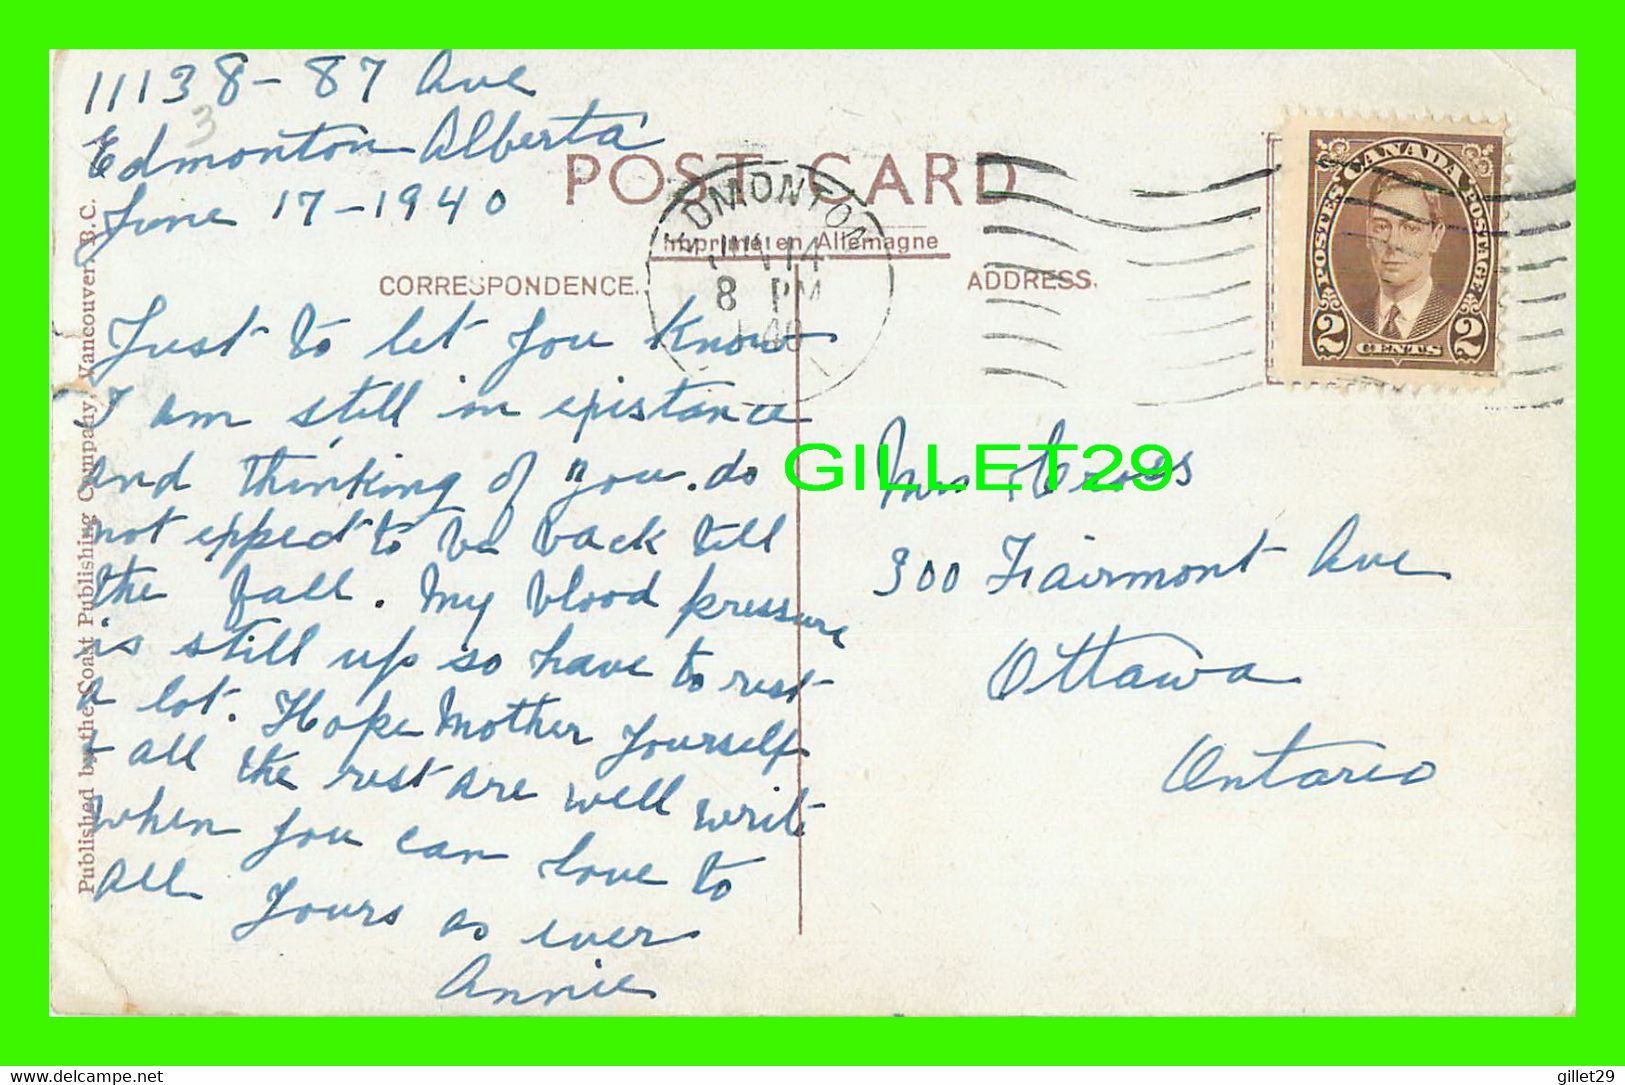 11138-87 Ave
3
Edmonton Alberta
June 17-1940
POST CARD
Imprimé en Allemagne
CORRESPONDENCE.
ADDRESS.
EDMONTON
JUN 14
8 PM
1940
CANADA
POSTES
POSTAGE
2
CENTS
2
Just to let you know
I am still in epistance
and thinking of you. do
not eppect to be back till
the fall. My blood pressure
is still up so have to rest
a lot. Hope Mother yourself
+ all the rest are well write
when you can love to
all yours as ever
Annie
Mrs Cross
300 Fairmont Ave
Ottawa
Ontario
Published by the Coast Publishing Company, Vancouver, B.C.
GILLET29
delcampe.net
gillet29